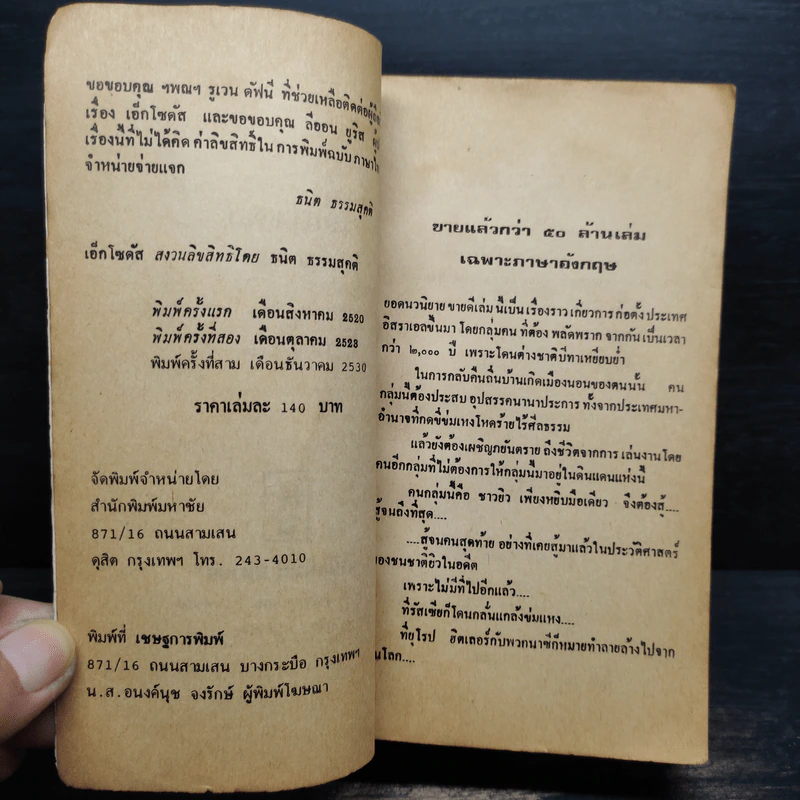 ขอขอบคุณ ฯพณฯ รูเวน ดัฟนี ที่ช่วยเหลือติดต่อ
เรื่อง เอ็กโซดัส และขอขอบคุณ ลีออน ยูริส
เรื่องนี้ที่ไม่ได้คิด ค่าลิขสิทธิ์ใน การพิมพ์ฉบับ
จำหน่ายจ่ายแจก
ธนิต ธรรมสุคติ
เอ็กโซดัส สงวนลิขสิทธิ์โดย ธนิต ธรรมสุคติ
พิมพ์ครั้งแรก เดือนสิงหาคม 2520
พิมพ์ครั้งที่สอง เดือนตุลาคม 2523
พิมพ์ครั้งที่สาม เดือนธันวาคม 2530
ราคาเล่มละ 140 บาท
จัดพิมพ์จำหน่ายโดย
สำนักพิมพ์มหาชัย
871/16 ถนนสามเสน
ดุสิต กรุงเทพฯ โทร. 243-4010
พิมพ์ที่ เชษฐการพิมพ์
871/16 ถนนสามเสน บางกระบือ กรุงเทพฯ
น.ส.อนงค์นุช จงรักษ์ ผู้พิมพ์โฆษณา
ขายแล้วกว่า ๕๐ ล้านเล่ม
เฉพาะภาษาอังกฤษ
ยอดนวนิยาย ขายดีเล่ม นี้เป็น เรื่องราว เกี่ยวการ ก่อตั้ง ประเทศ
อิสราเอลขึ้นมา โดยกลุ่มคน ที่ต้อง พลัดพราก จากกัน เป็นเวลา
กว่า ๒,๐๐๐ ปี เพราะโดนต่างชาติบีฑาเหยียบย่ำ
ในการกลับคืนถิ่นบ้านเกิดเมืองนอนของตนนั้น คน
กลุ่มนี้ต้องประสบ อุปสรรคนานาประการ ทั้งจากประเทศมหา-
อำนาจที่กดขี่ข่มเหงโหดร้ายไร้ศีลธรรม
แล้วยังต้องเผชิญภยันตราย ถึงชีวิตจากการ เล่นงานโดย
คนอีกกลุ่มที่ไม่ต้องการให้กลุ่มนี้มาอยู่ในดินแดนแห่งนี้
คนกลุ่มนี้คือ ชาวยิว เพียงหยิบมือเดียว จึงต้องสู้....
สู้จนถึงที่สุด....
....สู้จนคนสุดท้าย อย่างที่เคยสู้มาแล้วในประวัติศาสตร์
ของชนชาติยิวในอดีต
เพราะไม่มีที่ไปอีกแล้ว....
ที่รัสเซียก็โดนกลั่นแกล้งข่มเหง....
ที่ยุโรป ฮิตเลอร์กับพวกนาซีก็หมายทำลายล้างไปจาก
นโลก....